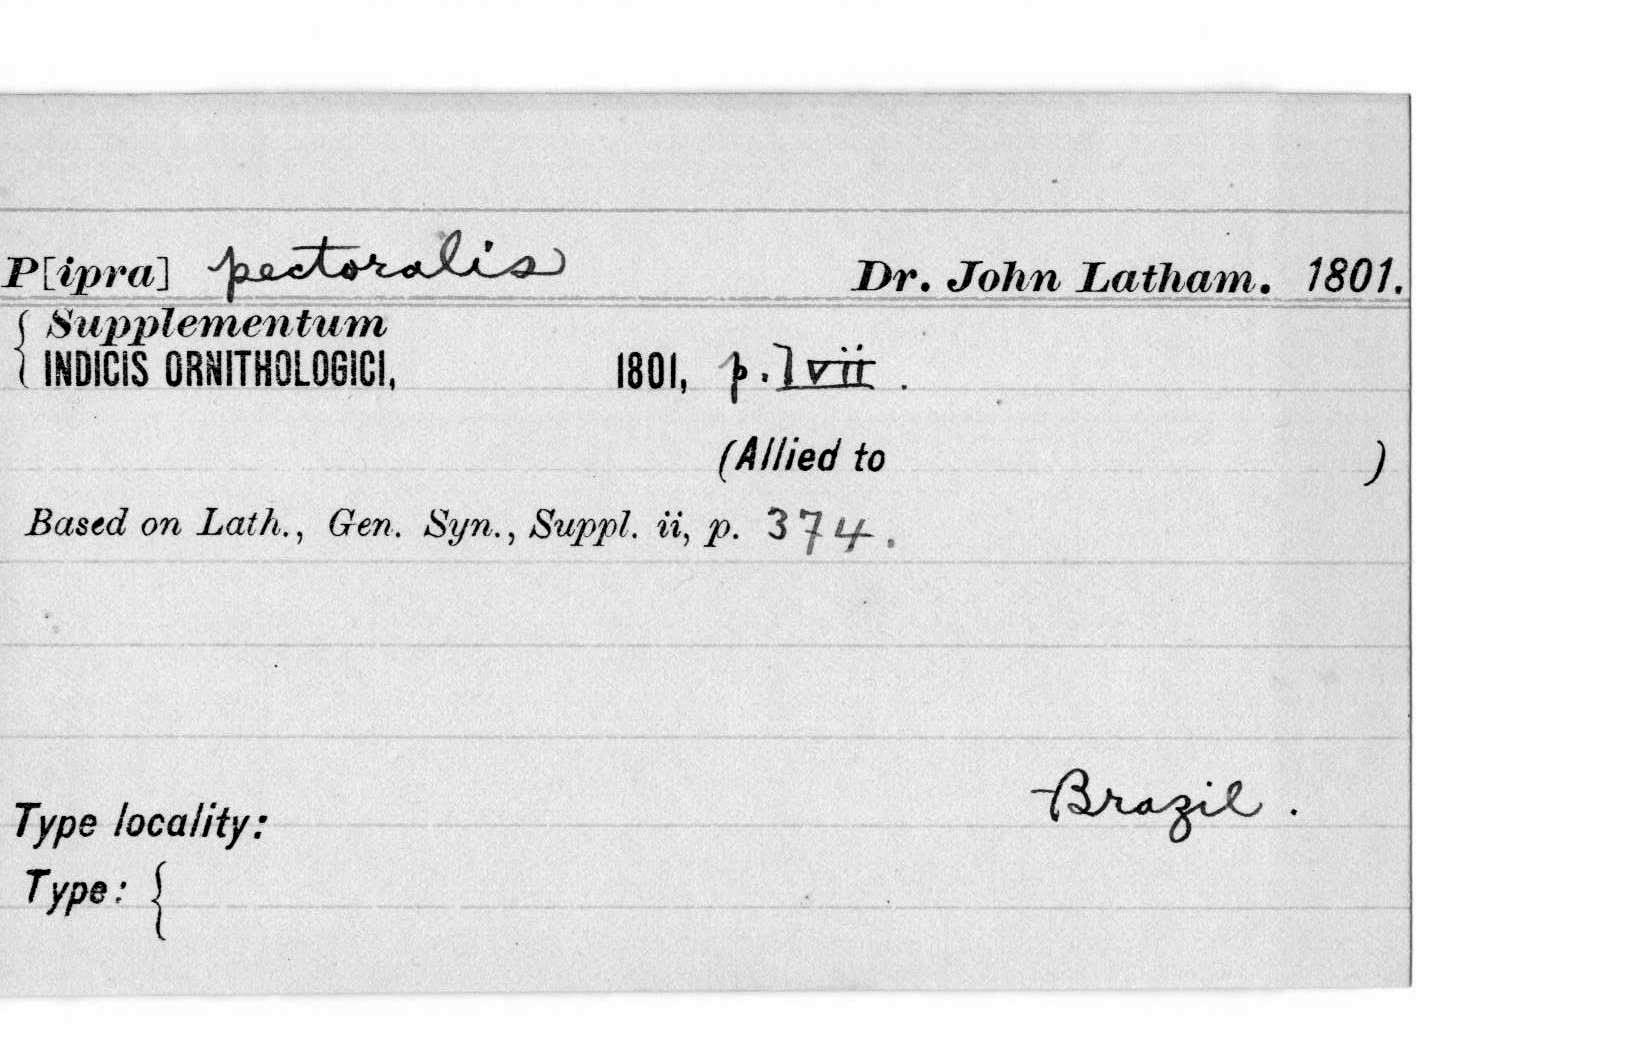 P[ipra] pectoralis Dr. John Latham. 1801.
{ Supplementum
INDICIS ORNITHOLOGICI, 1801, p. lvii .
(Allied to )
Based on Lath., Gen. Syn., Suppl. ii, p. 374.
Brazil .
Type locality:
Type: {